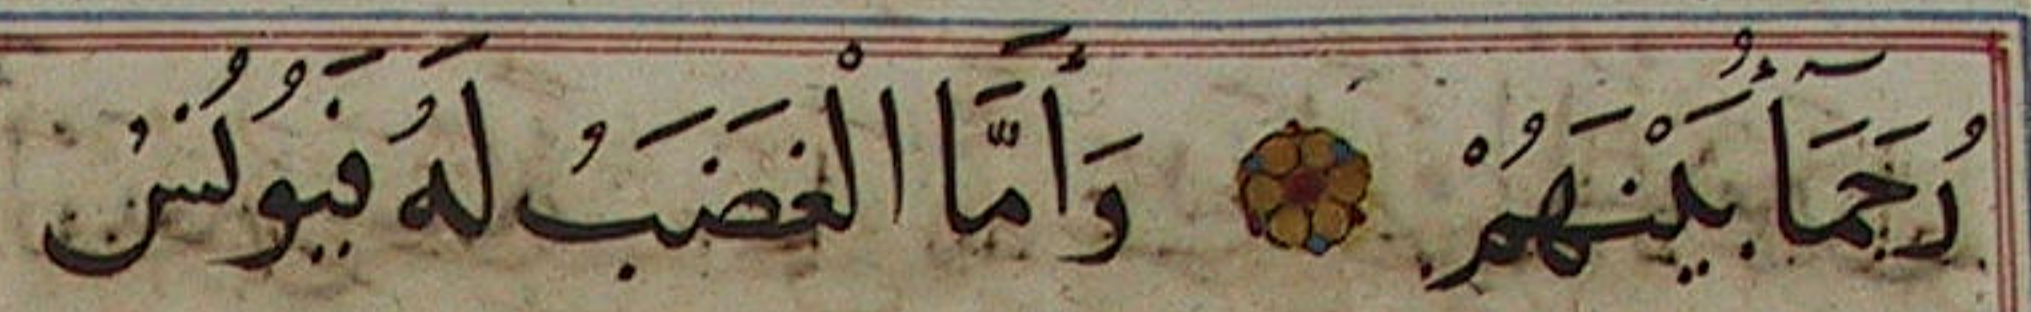 رُحَمَآءُ بَيْنَهُمْ وَأَمَّا الْغَضَبُ لَهُ فَيُونُسُ